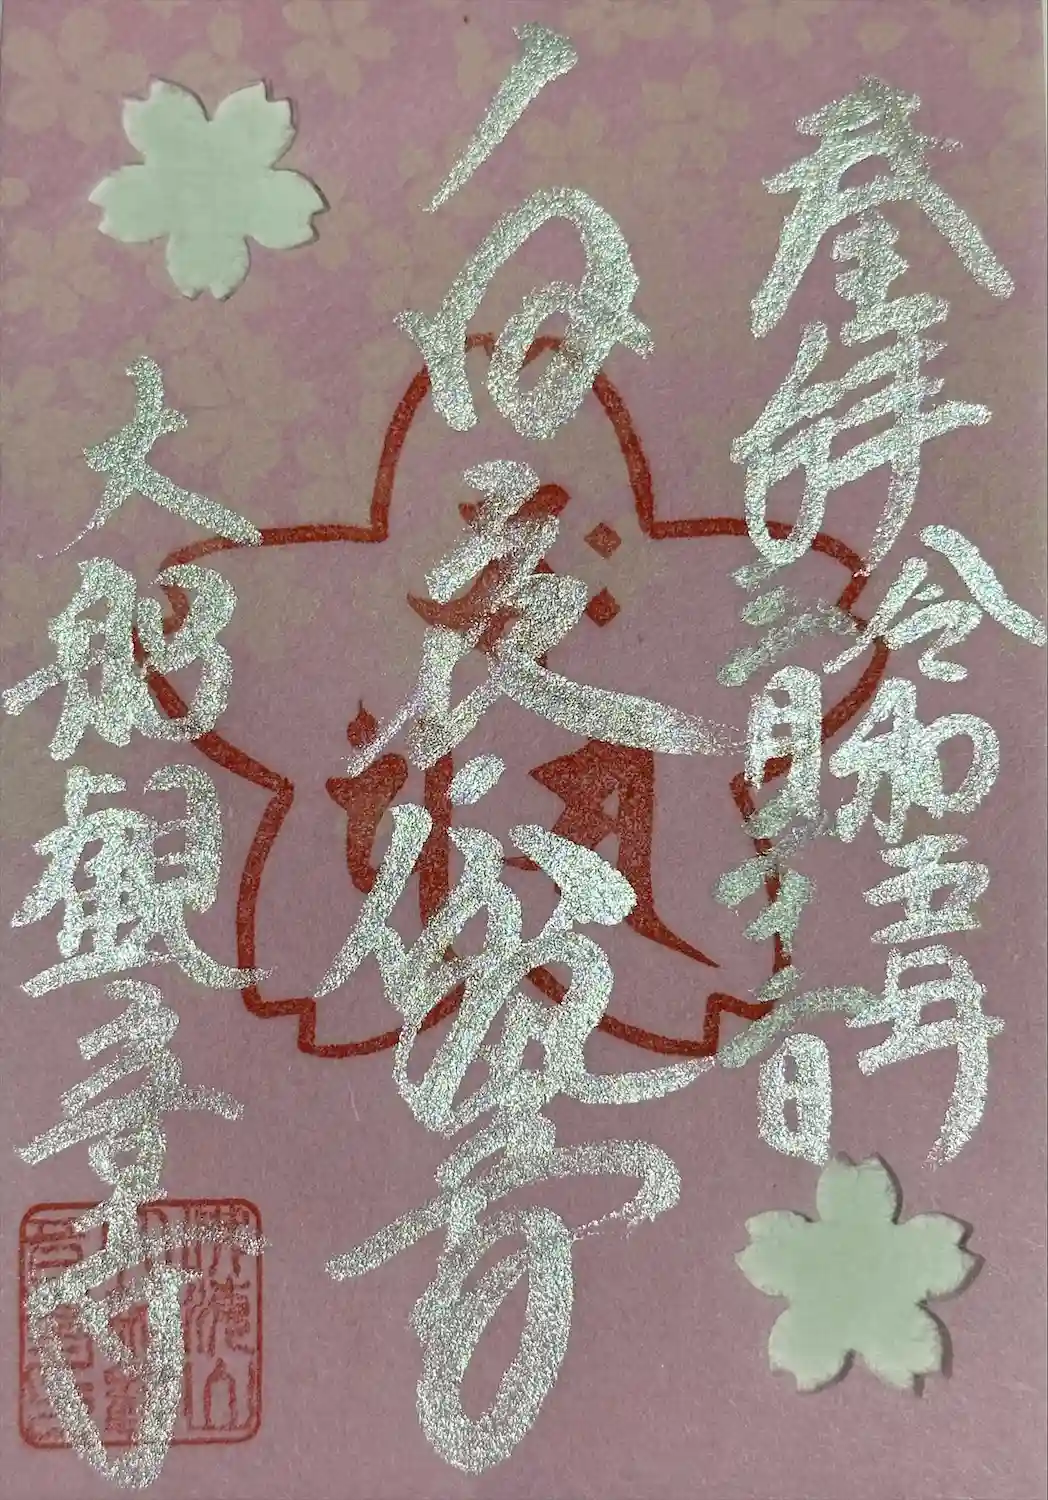 奉拝
令和五年
三月二十一日
白衣観音
大船観音寺